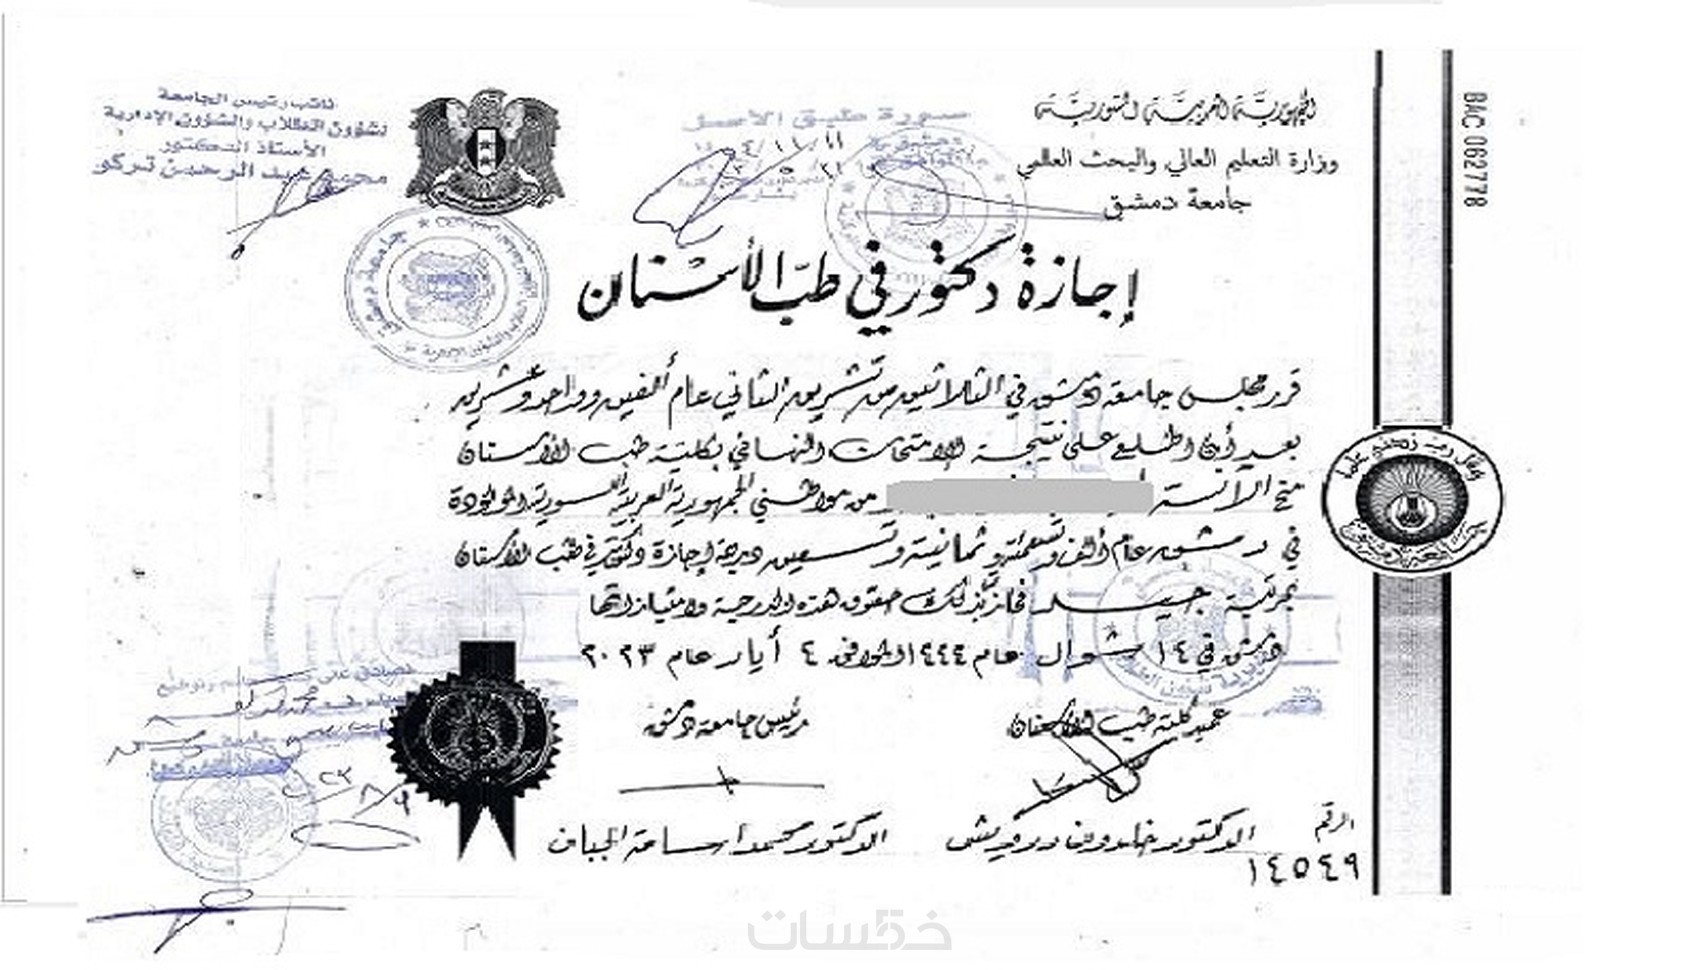 الجمهوريَّة العربيَّة السوريَّة
وزارة التعليم العالي والبحث العلمي
جامعة دمشق
BAC 062778
صورة طبق الأصل
نائب رئيس الجامعة
لشؤون الطلاب والشؤون الإدارية
الأستاذ الدكتور
محمد عبد الرحمن تركو
إجازة دكتور في طبّ الأسنان
قرر مجلس جامعة دمشق في الثلاثين من تشرين الثاني عام ألفين وواحد وعشرين
بعد أن اطلع على نتيجة الامتحان النهائي بكلية طب الأسنان
منح الآنسة من مواطني الجمهورية العربية السورية المولودة
في دمشق عام ألف وتسعمئة وثمانية وتسعين درجة إجازة دكتور في طب الأسنان
بمرتبة جيد فحاز بذلك حقوق هذه الدرجة وامتيازاتها
دمشق في ١٤ شوال عام ١٤٤٤ الموافق ٤ أيار عام ٢٠٢٣
عميد كلية طب الأسنان
رئيس جامعة دمشق
الدكتور خلدون درويش
الدكتور محمد أسامة الجبان
الرقم
١٤٥٤٩
خمسات